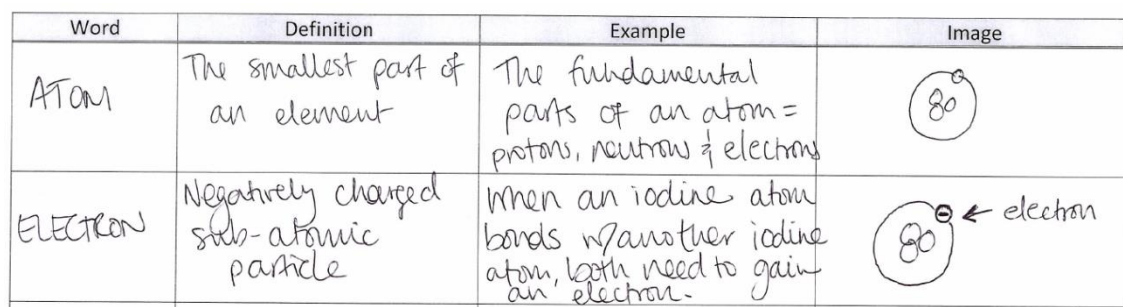 Word Definition Example Image
ATOM
The smallest part of
an element
The fundamental
parts of an atom =
protons, neutrons & electrons
ELECTRON
Negatively charged
sub-atomic
particle
When an iodine atom
bonds w/another iodine
atom, both need to gain
an electron.
⊖ ← electron